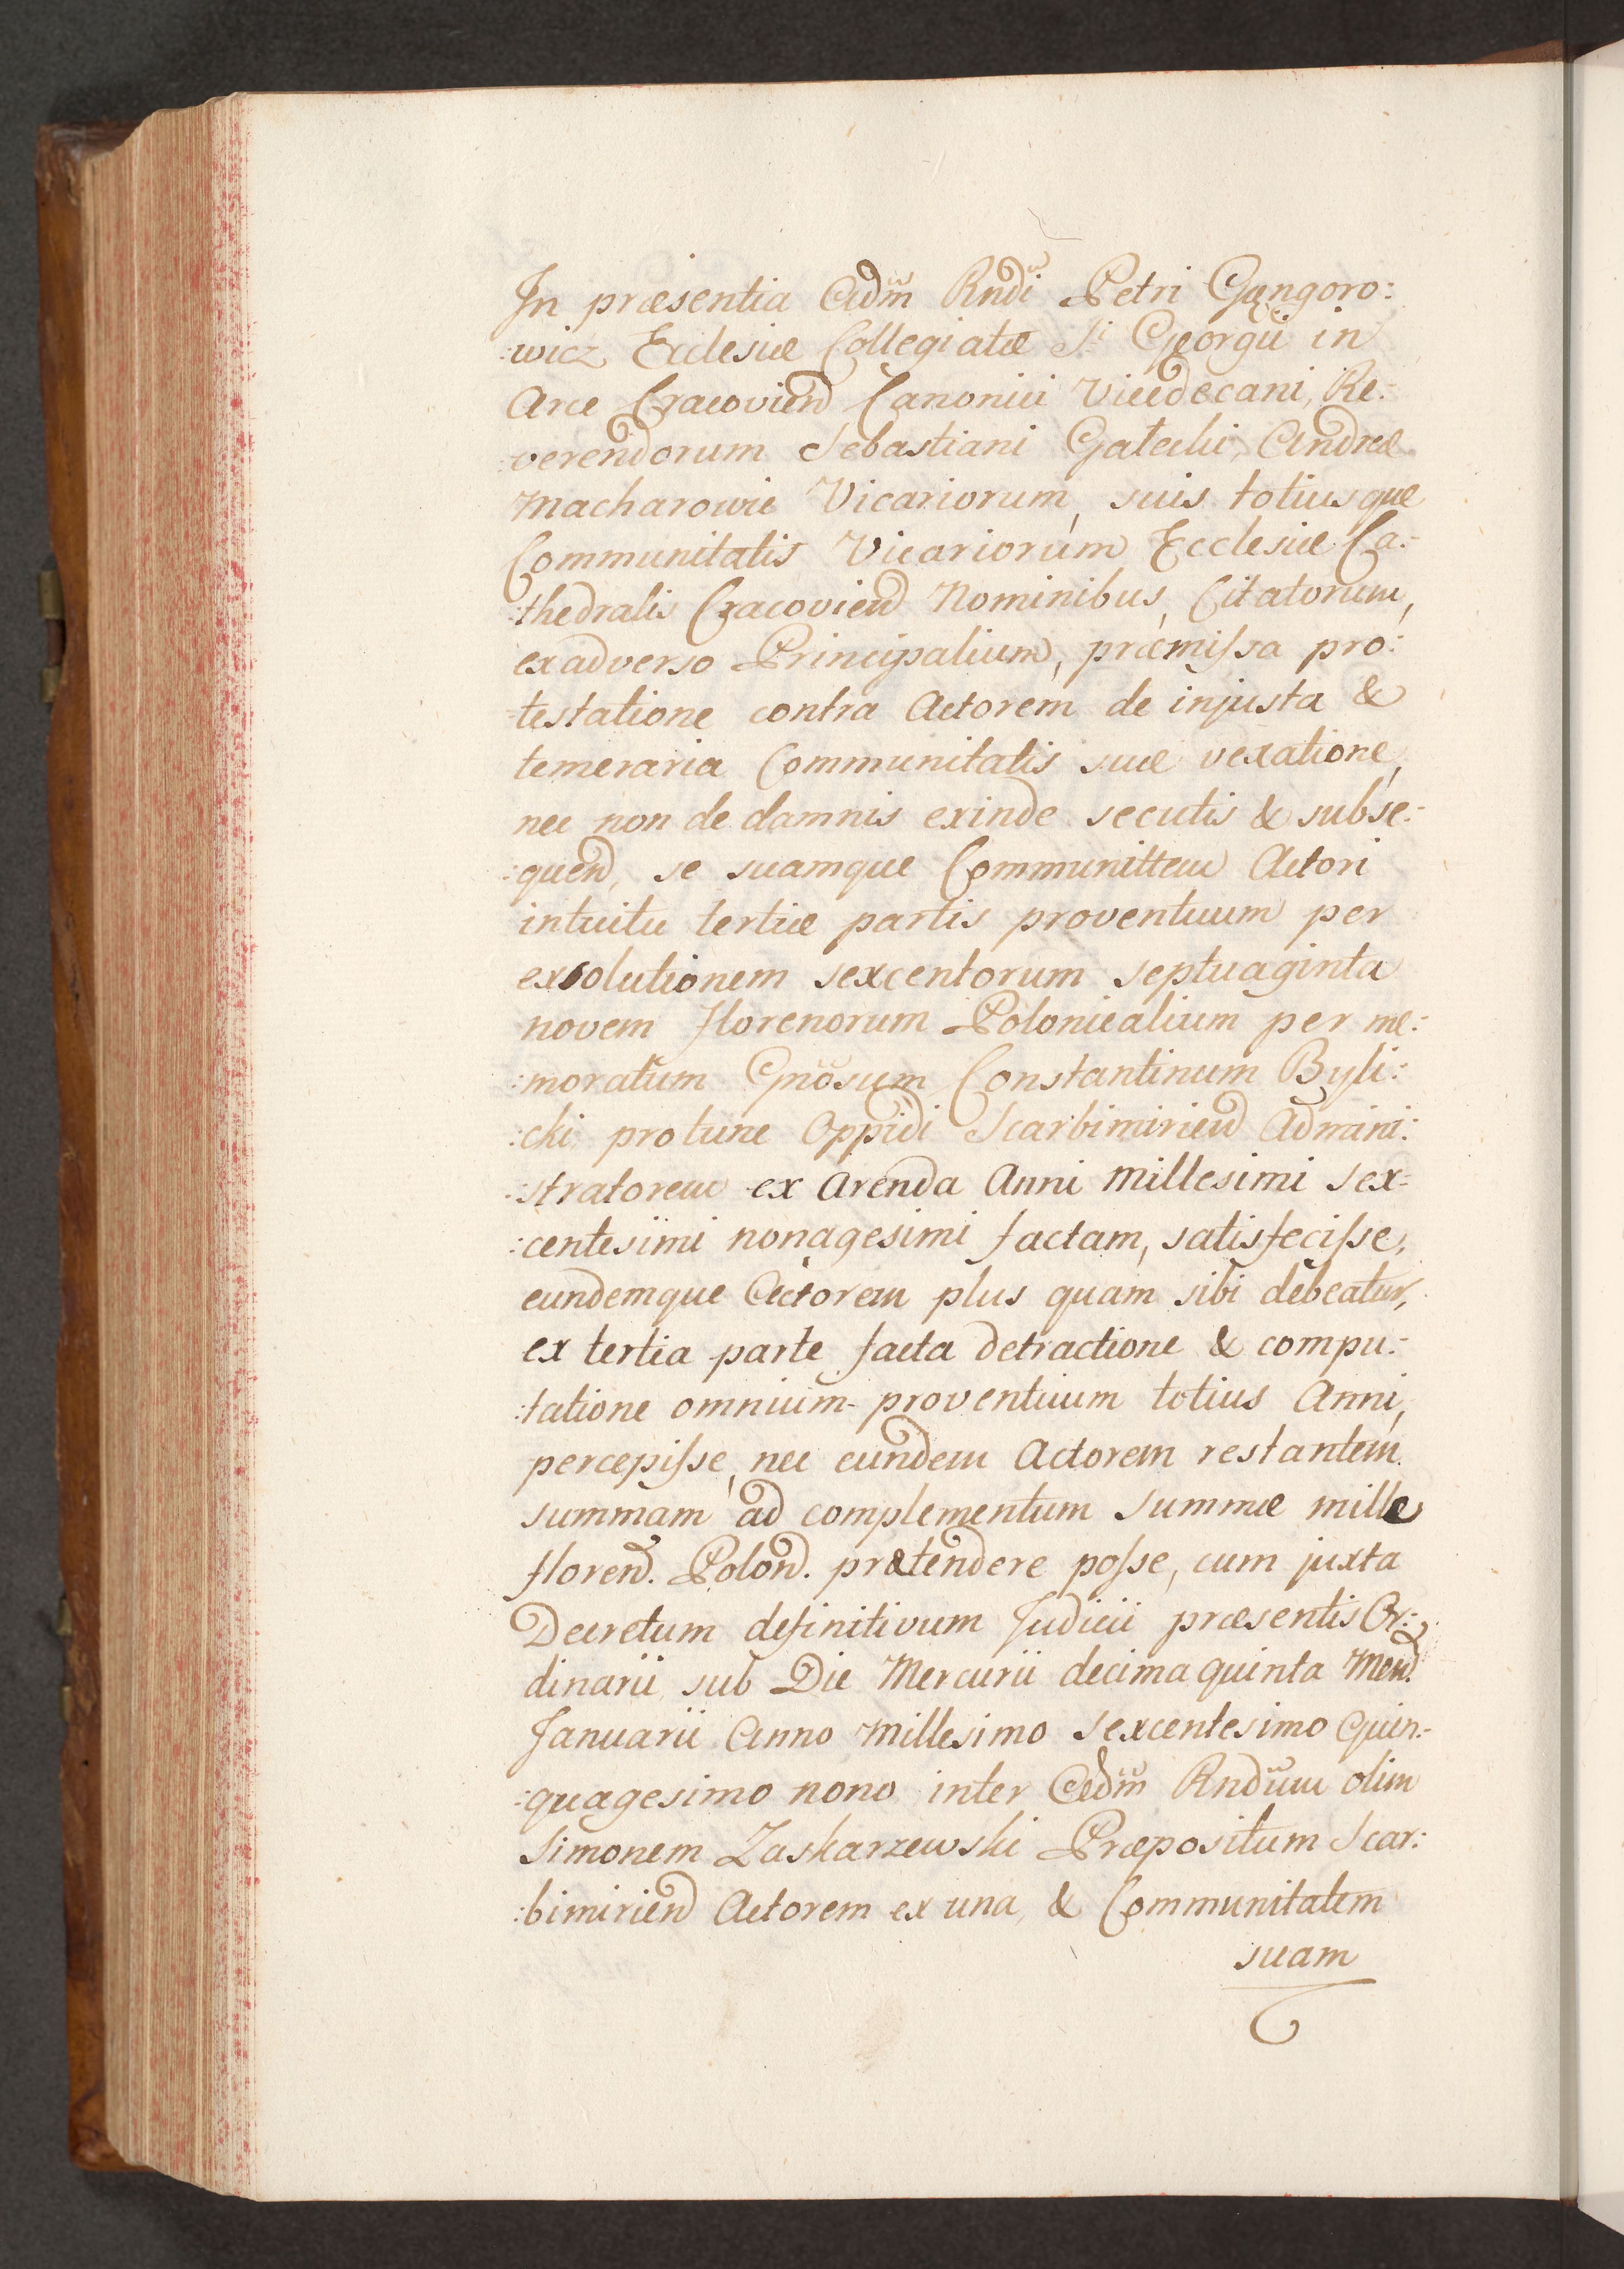 In præsentia Adm̃ Rndi Petri Gągoro:
:wicz Ecclesiæ Collegiatæ S.i Georgii in
Arce Cracovien̄ Canonici Vicedecani, Re:
:verendorum Sebastiani Gatecki, Andreæ
Macharowic Vicariorum, suis totiusque
Communitatis Vicariorum Ecclesiæ Ca:
:thedralis Cracovien̄ Nominibus, Citatorum,
ex adverso Principalium, præmissa pro:
:testatione contra Actorem de injusta &
temeraria Communitatis suæ vexatione,
nec non de damnis exinde secutis & subse:
:quen̄, se suamque Communittem Actori
intuitu tertiæ partis proventuum per
exsolutionem sexcentorum septuaginta
novem florenorum Polonicalium per me:
:moratum Gnosum Constantinum Byli:
:cki protunc Oppidi Scarbimirien̄ Admini:
:stratorem ex Arenda Anni Millesimi Sex:
:centesimi nonagesimi factam, satisfecisse,
eundemque Actorem plus quam sibi debeatur,
ex tertia parte facta detractione & compu:
:tatione omnium proventuum totius Anni,
percepisse, nec eundem Actorem restantem
summam ad complementum Summæ mille
floren̄. Polon̄. prætendere posse, cum juxta
Decretum definitivum Judicii præsentis Or:
dinarii sub Die Mercurii decima quinta Men̄.
Januarii Anno Millesimo Sexcentesimo Quin:
:quagesimo nono inter Adm̃ Rndum olim
Simonem Zaskarzewski Præpositum Scar:
:bimirien̄ Actorem ex una, & Communitatem
suam